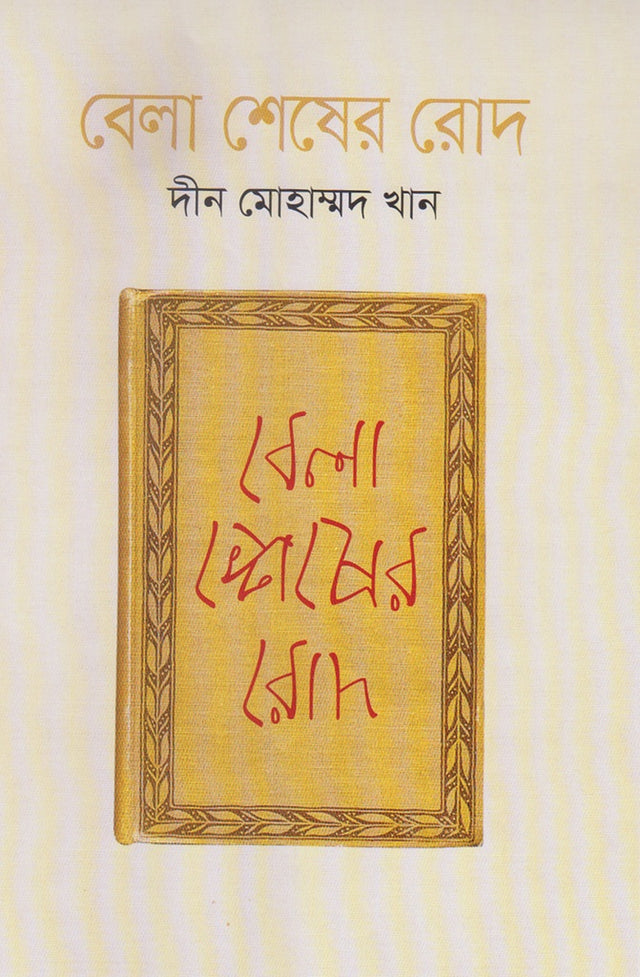 বেলা শেষের রোদ
দীন মোহাম্মদ খান
বেলা
শেষের
রোদ